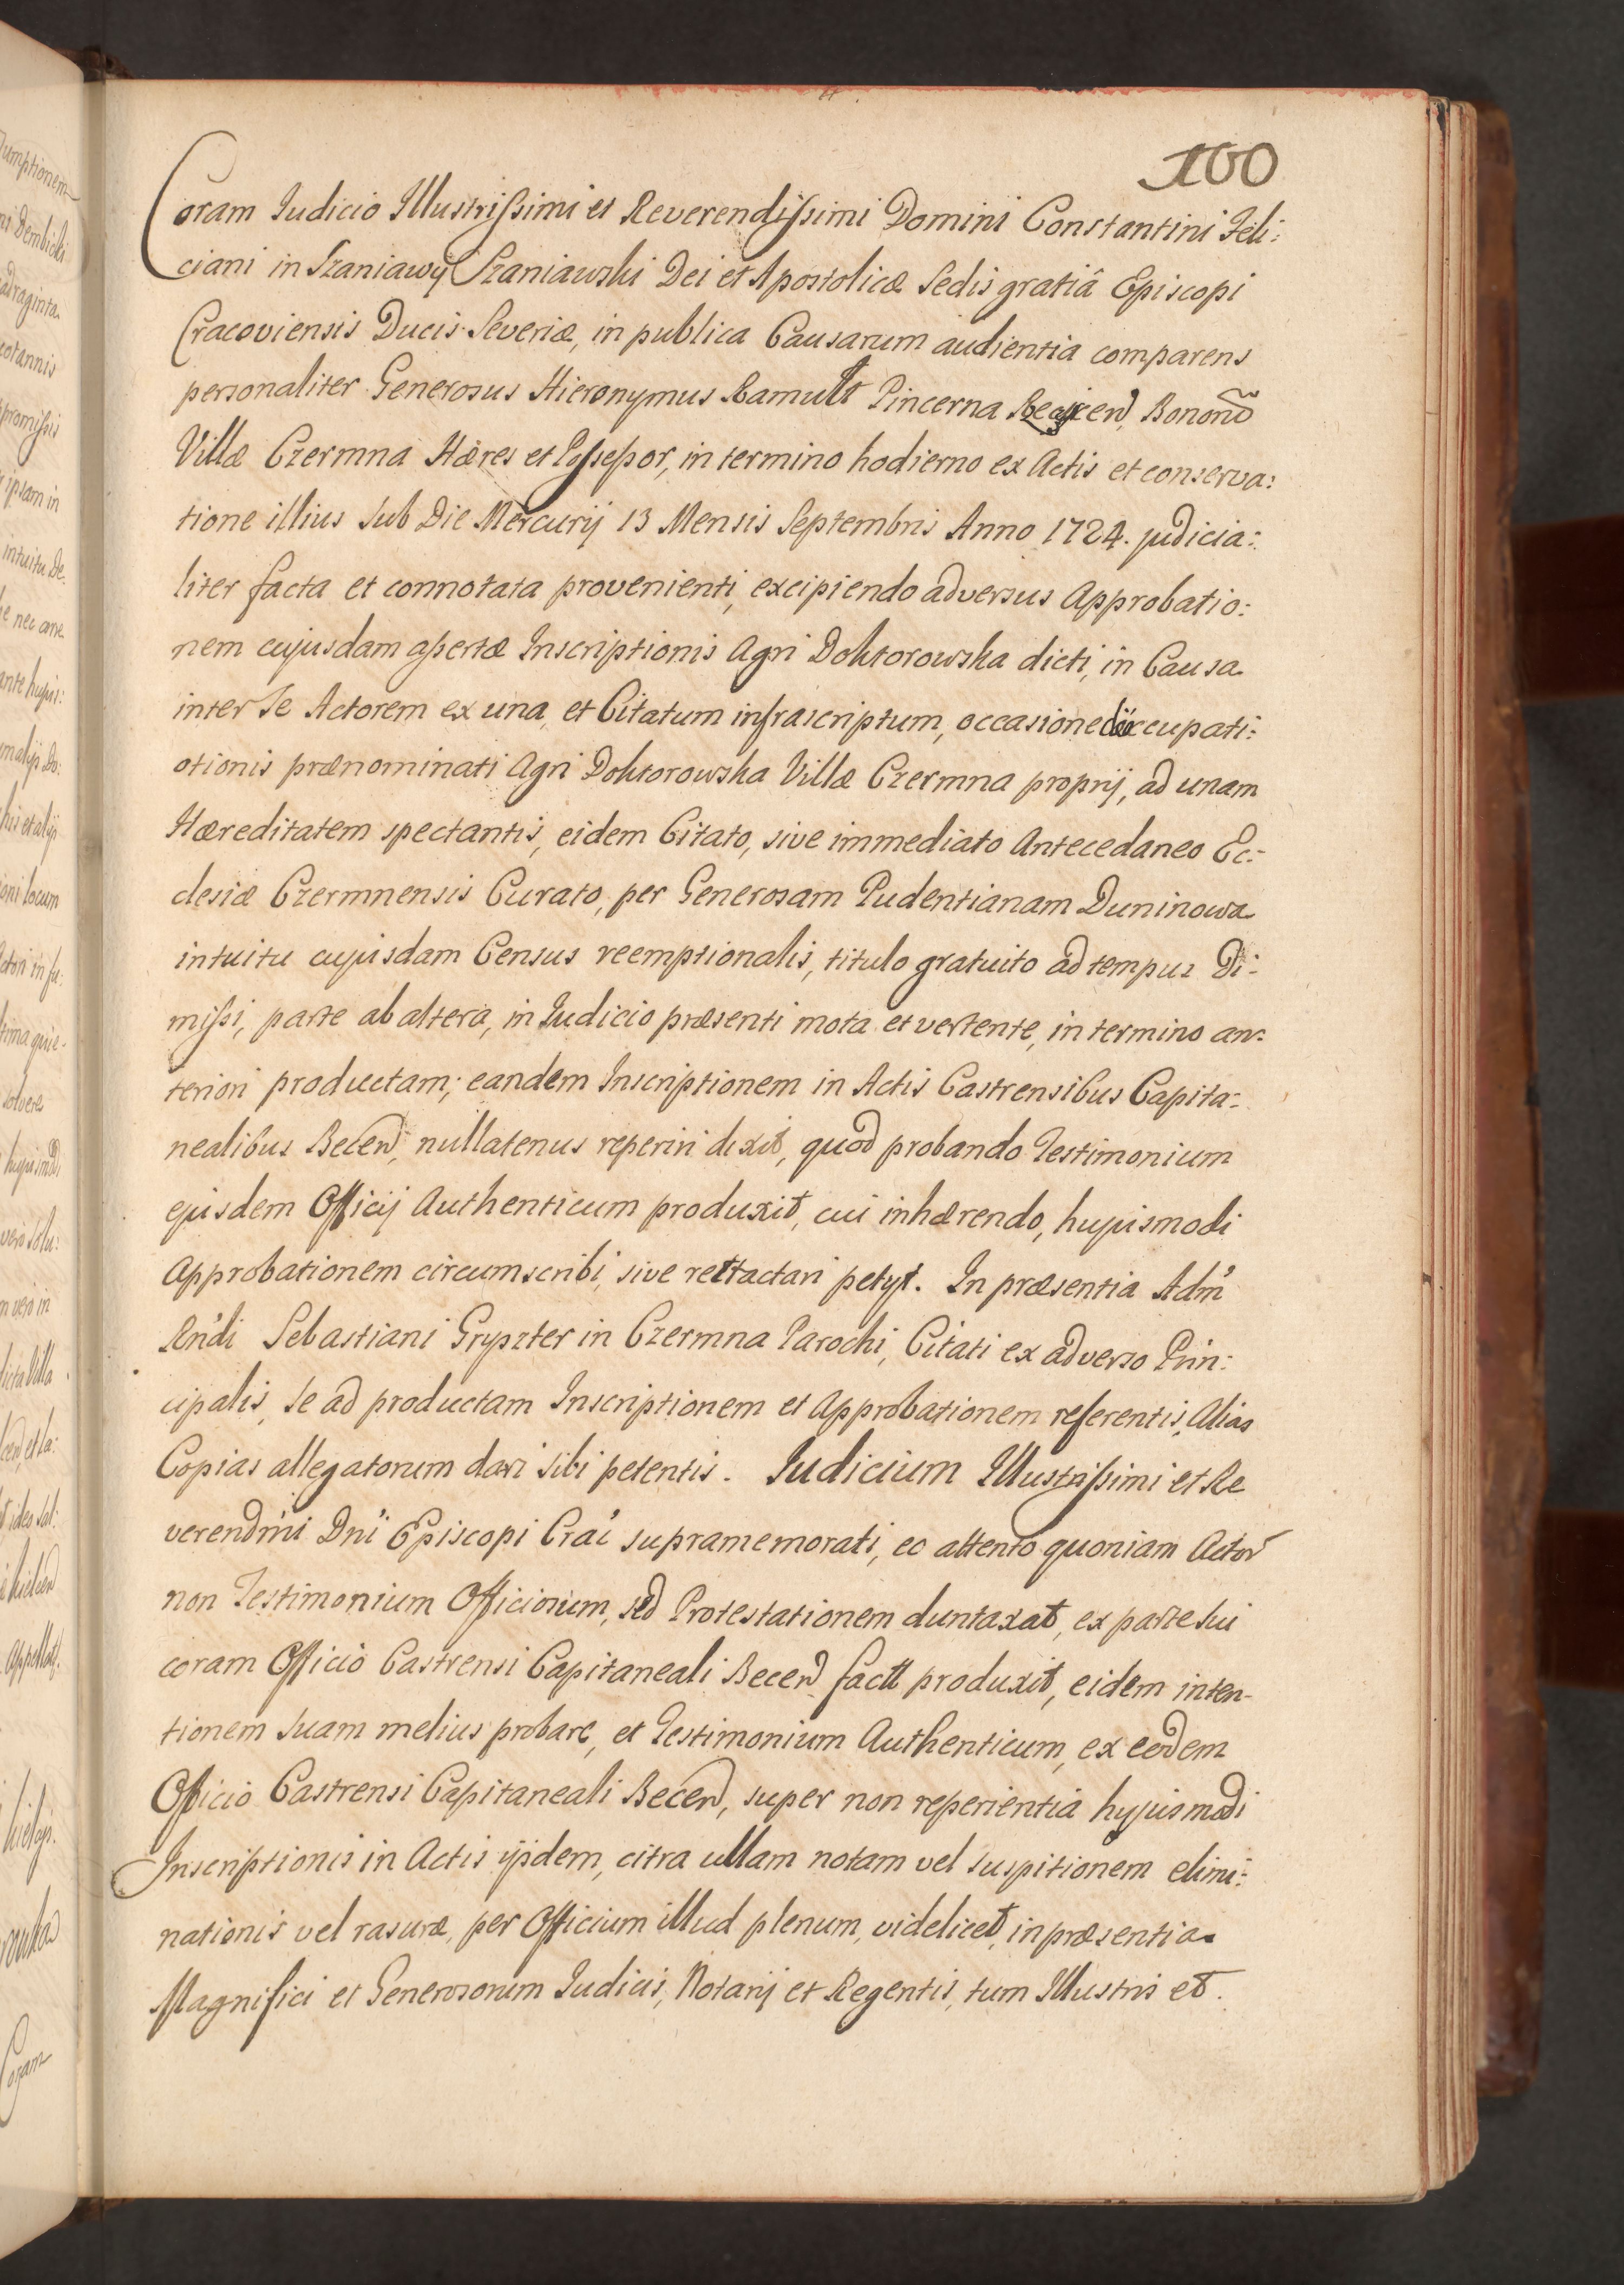 100
Coram Iudicio Illustrissimi et Reverendissimi Domini Constantini Feli:
ciani in Szaniawy Szaniawski Dei et Apostolicæ Sedis gratiâ Episcopi
Cracoviensis Ducis Severiæ, in publica Causarum audientia comparens
personaliter Generosus Hieronymus Ramult Pincerna Bonorũ
Villæ Czermna Hæres et Possessor, in termino hodierno ex Actis et conserva:
tione illius sub Die Mercurij 13 Mensis Septembris Anno 1724. judicia:
liter facta et connotata provenienti, excipiendo adversus Approbatio:
nem cujusdam assertæ Inscriptionis Agri Doktorowska dicti, in Causa
inter se Actorem ex una, et Citatum infrascriptum, occasione occupati:
otionis prænominati Agri Doktorowska Villæ Czermna proprij, ad unam
Hæreditatem spectantis, eidem Citato, sive immediato Antecedaneo Ec:
clesiæ Czermnensis Curato, per Generosam Pudentianam Duninowa
intuitu cujusdam Census reemptionalis, titulo gratuito ad tempus Di:
missi, parte ab altera, in Iudicio præsenti mota et vertente, in termino an:
teriori productam; eandem Inscriptionem in Actis Castrensibus Capita:
nealibus Becen, nullatenus reperiri dixit, quod probando Testimonium
ejusdem Officij Authenticum produxit, cui inhærendo, hujusmodi
Approbationem circumscribi, sive rettactari petyt. In præsentia Adm̃
Rńdi Sebastiani Gryszter in Czermna Parochi, Citati ex adverso Prin:
cipalis, se ad productam Inscriptionem et Approbationem referentis, Alias
Copias allegatorum dari sibi petentis. Iudicium Illustrissimi et Re
verendmi Dńi Episcopi Crać supramemorati, eo attento quoniam Actor
non Testimonium Officiosum, sed Protestationem duntaxat, ex parte sui
coram Officio Castrensi Capitaneali Becen factt produxit, eidem inten-
tionem suam melius probare, et Testimonium Authenticum, ex eodem
Officio Castrensi Capitaneali Becen, super non reperientia hujusmodi
Inscriptionis in Actis ijsdem, citra ullam notam vel suspitionem elimi:
nationis vel rasuræ, per Officium illud plenum, videlicet, in præsentia
Magnifici et Generosorum Iudicis, Notarij et Regentis, tum Illustris et.